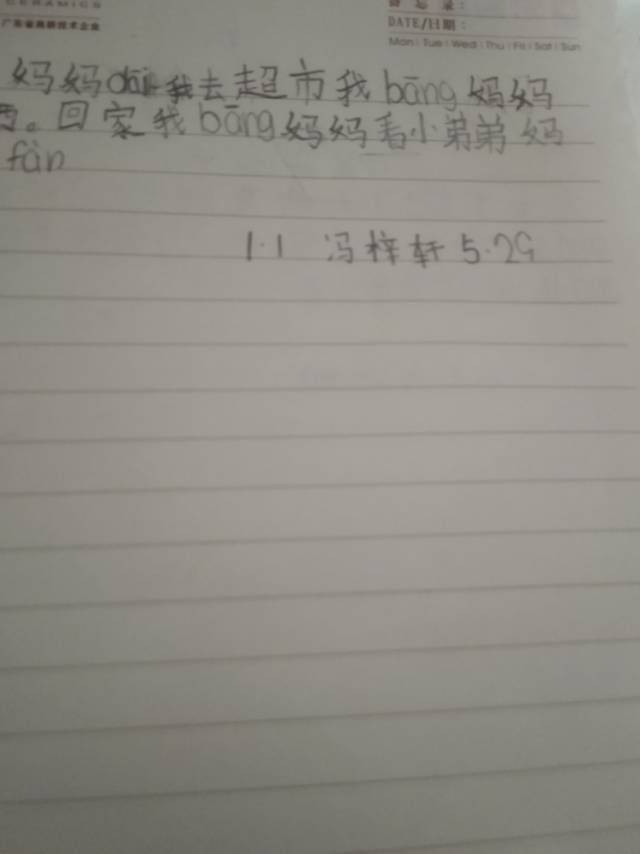 CERAMICS
广东省高新技术企业
备忘录:
DATE/日期:
Mon | Tue | Wed | Thu | Fri | Sat | Sun
妈妈dài我去超市我bāng妈妈
西。回家我bāng妈妈看小弟弟妈
fàn
1.1 冯梓轩 5.29